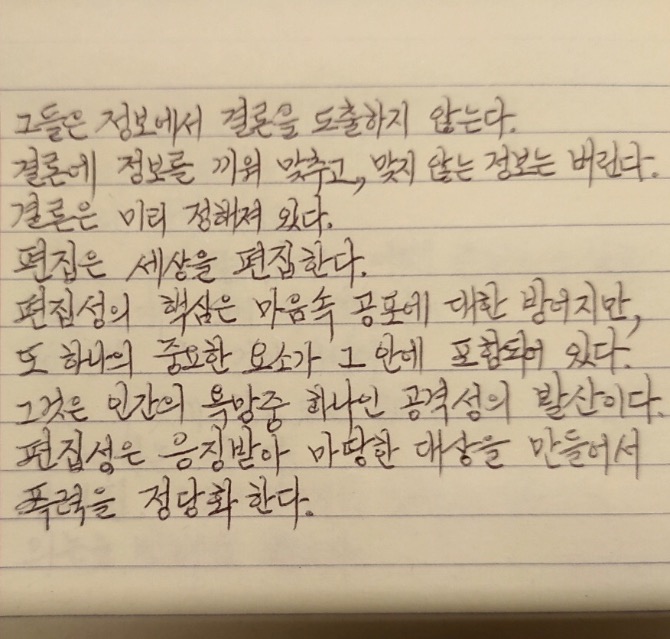 그들은 정보에서 결론을 도출하지 않는다.
결론에 정보를 끼워 맞추고, 맞지 않는 정보는 버린다.
결론은 미리 정해져 있다.
편집은 세상을 편집한다.
편집성의 핵심은 마음속 공포에 대한 방어지만,
또 하나의 중요한 요소가 그 안에 포함되어 있다.
그것은 인간의 욕망중 하나인 공격성의 발산이다.
편집성은 응징받아 마땅한 대상을 만들어서
폭력을 정당화 한다.